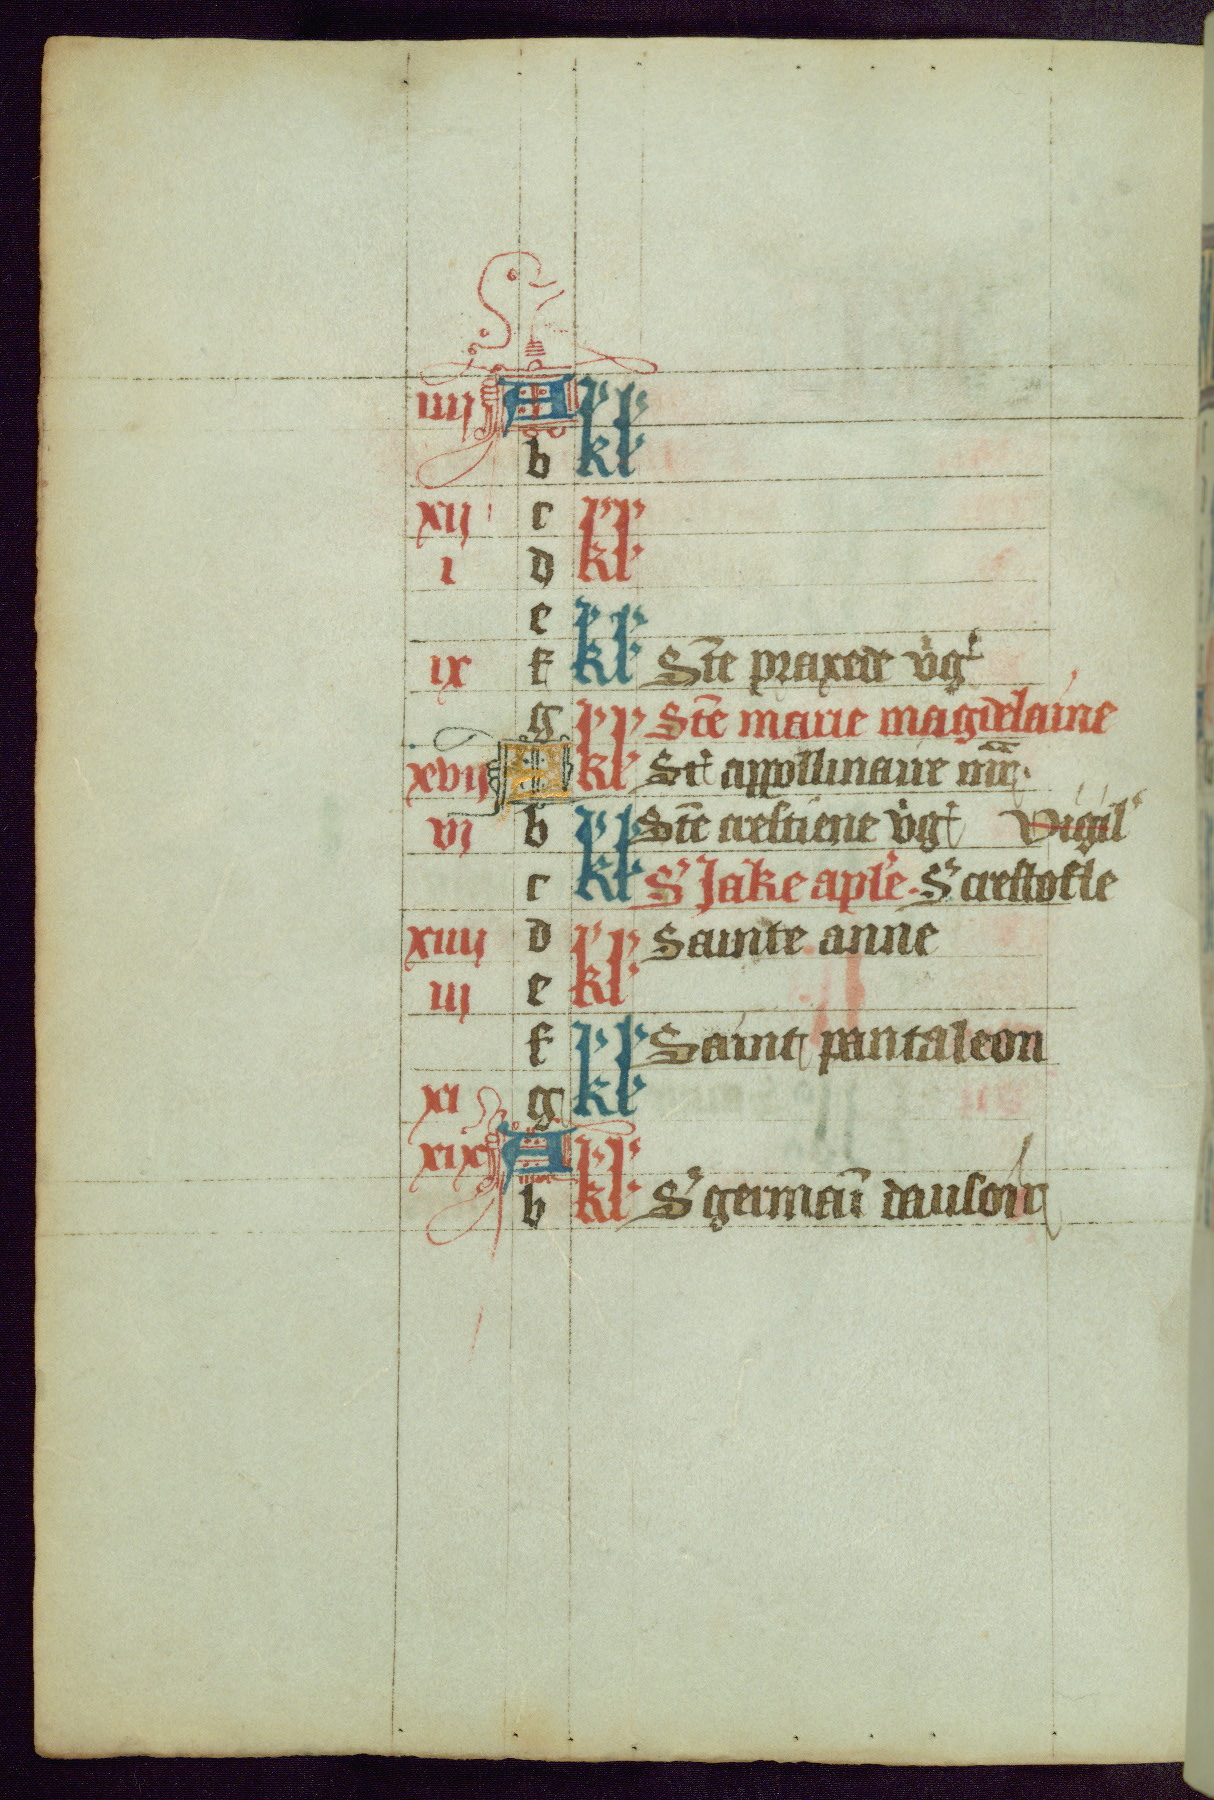 iiij A kl
b kl
xij c kl
i d kl
e kl
ix f kl Ste praxede vg
g kl Ste marie magdelaine
xvij A kl St appollinaire mr.
vj b kl Ste crestiene vg Vigil
c kl S' Jake aple. S' crestofle
xiiij d kl Sainte anne
iij e kl
f kl Saint pantaleon
xi g kl
xix A kl
b kl S' germai dausoir